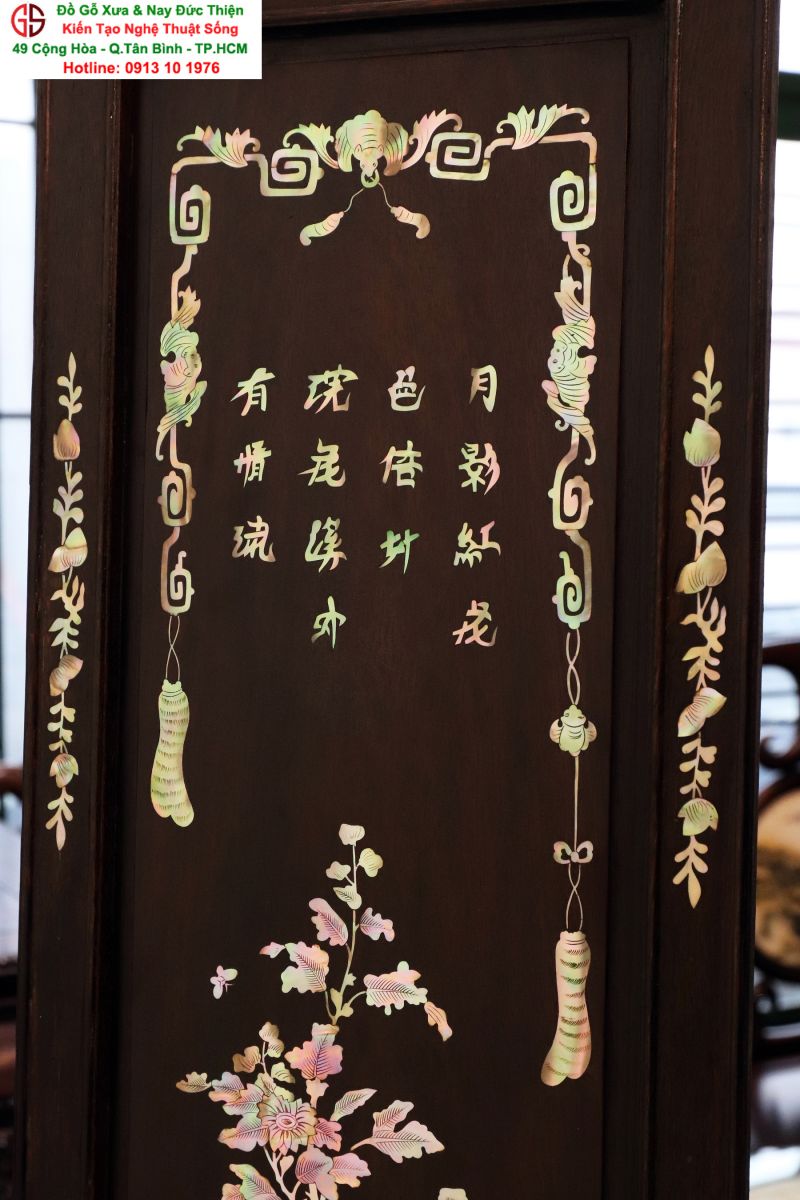 Đồ Gỗ Xưa & Nay Đức Thiện
Kiến Tạo Nghệ Thuật Sống
49 Cộng Hòa - Q.Tân Bình - TP.HCM
Hotline: 0913 10 1976
月影紅
色倍
尾溪外
有情流